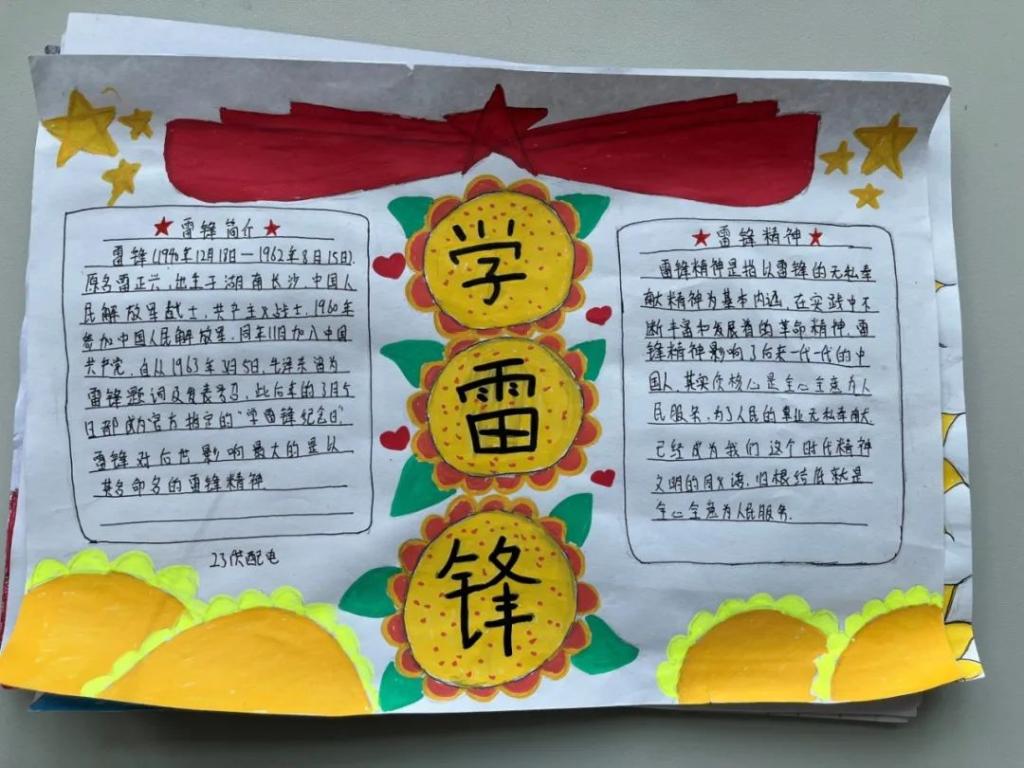 学
雷
锋
雷锋简介
雷锋(1940年12月18日—1962年8月15日)
原名雷正兴,他生于湖南长沙,中国人
民解放军战士,共产主义战士,1960年
参加中国人民解放军,同年11月加入中国
共产党,自从1963年3月5日,毛泽东曾为
雷锋题词及发表号召,此后来的3月5
日即成为官方指定的“学雷锋纪念日”
雷锋对后世影响最大的是以
其名命名的雷锋精神
23供配电
雷锋精神
雷锋精神是指以雷锋的无私奉
献精神为基本内涵,在实践中不
断丰富和发展着的革命精神,雷
锋精神影响了后来一代一代的中
国人,其实质核心是全心全意为人
民服务,为了人民的事业无私奉献
已经成为我们这个时代精神
文明的同义语,归根结底就是
全心全意为人民服务.